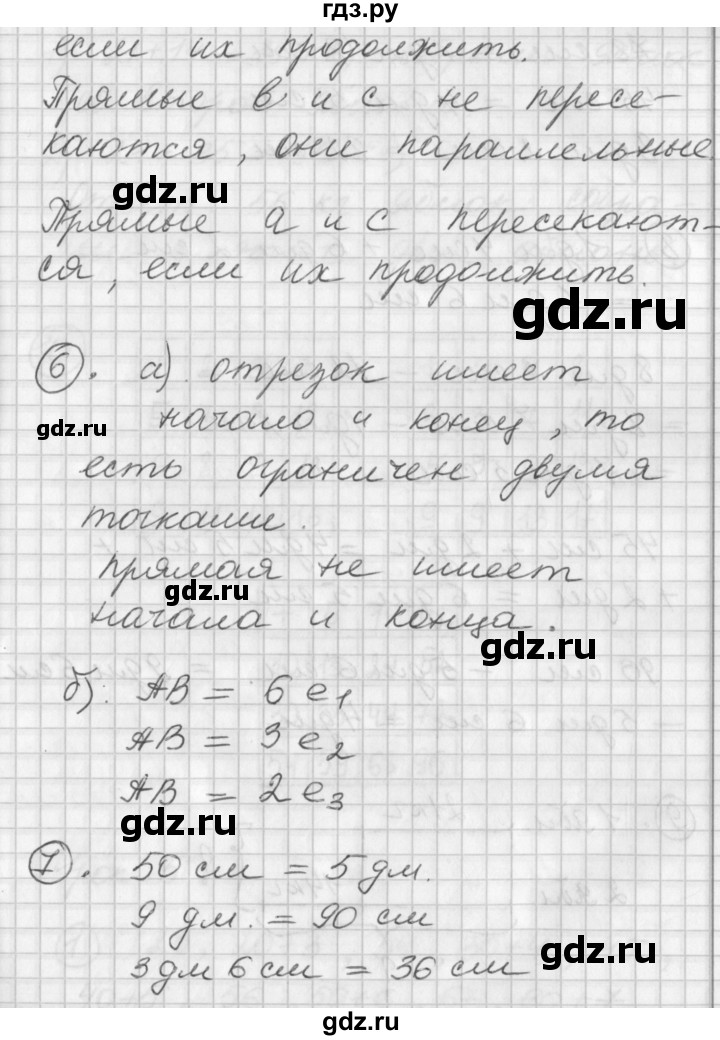 гдз.ру
если их продолжить.
Прямые в и с не пересе-
каются, они параллельные.
gdz.ru
Прямые а и с пересекают-
ся, если их продолжить.
gdz.ru
6. а) отрезок имеет
gdz.ru
начало и конец, то
есть ограничен двумя
точками.
прямая не имеет
gdz.ru
начала и конца.
gdz.ru
б). АВ = 6 е1
АВ = 3 е2
АВ = 2 е3
gdz.ru
7. 50 см = 5 дм.
9 дм. = 90 см
gdz.ru
3 дм 6 см = 36 см
gdz.ru